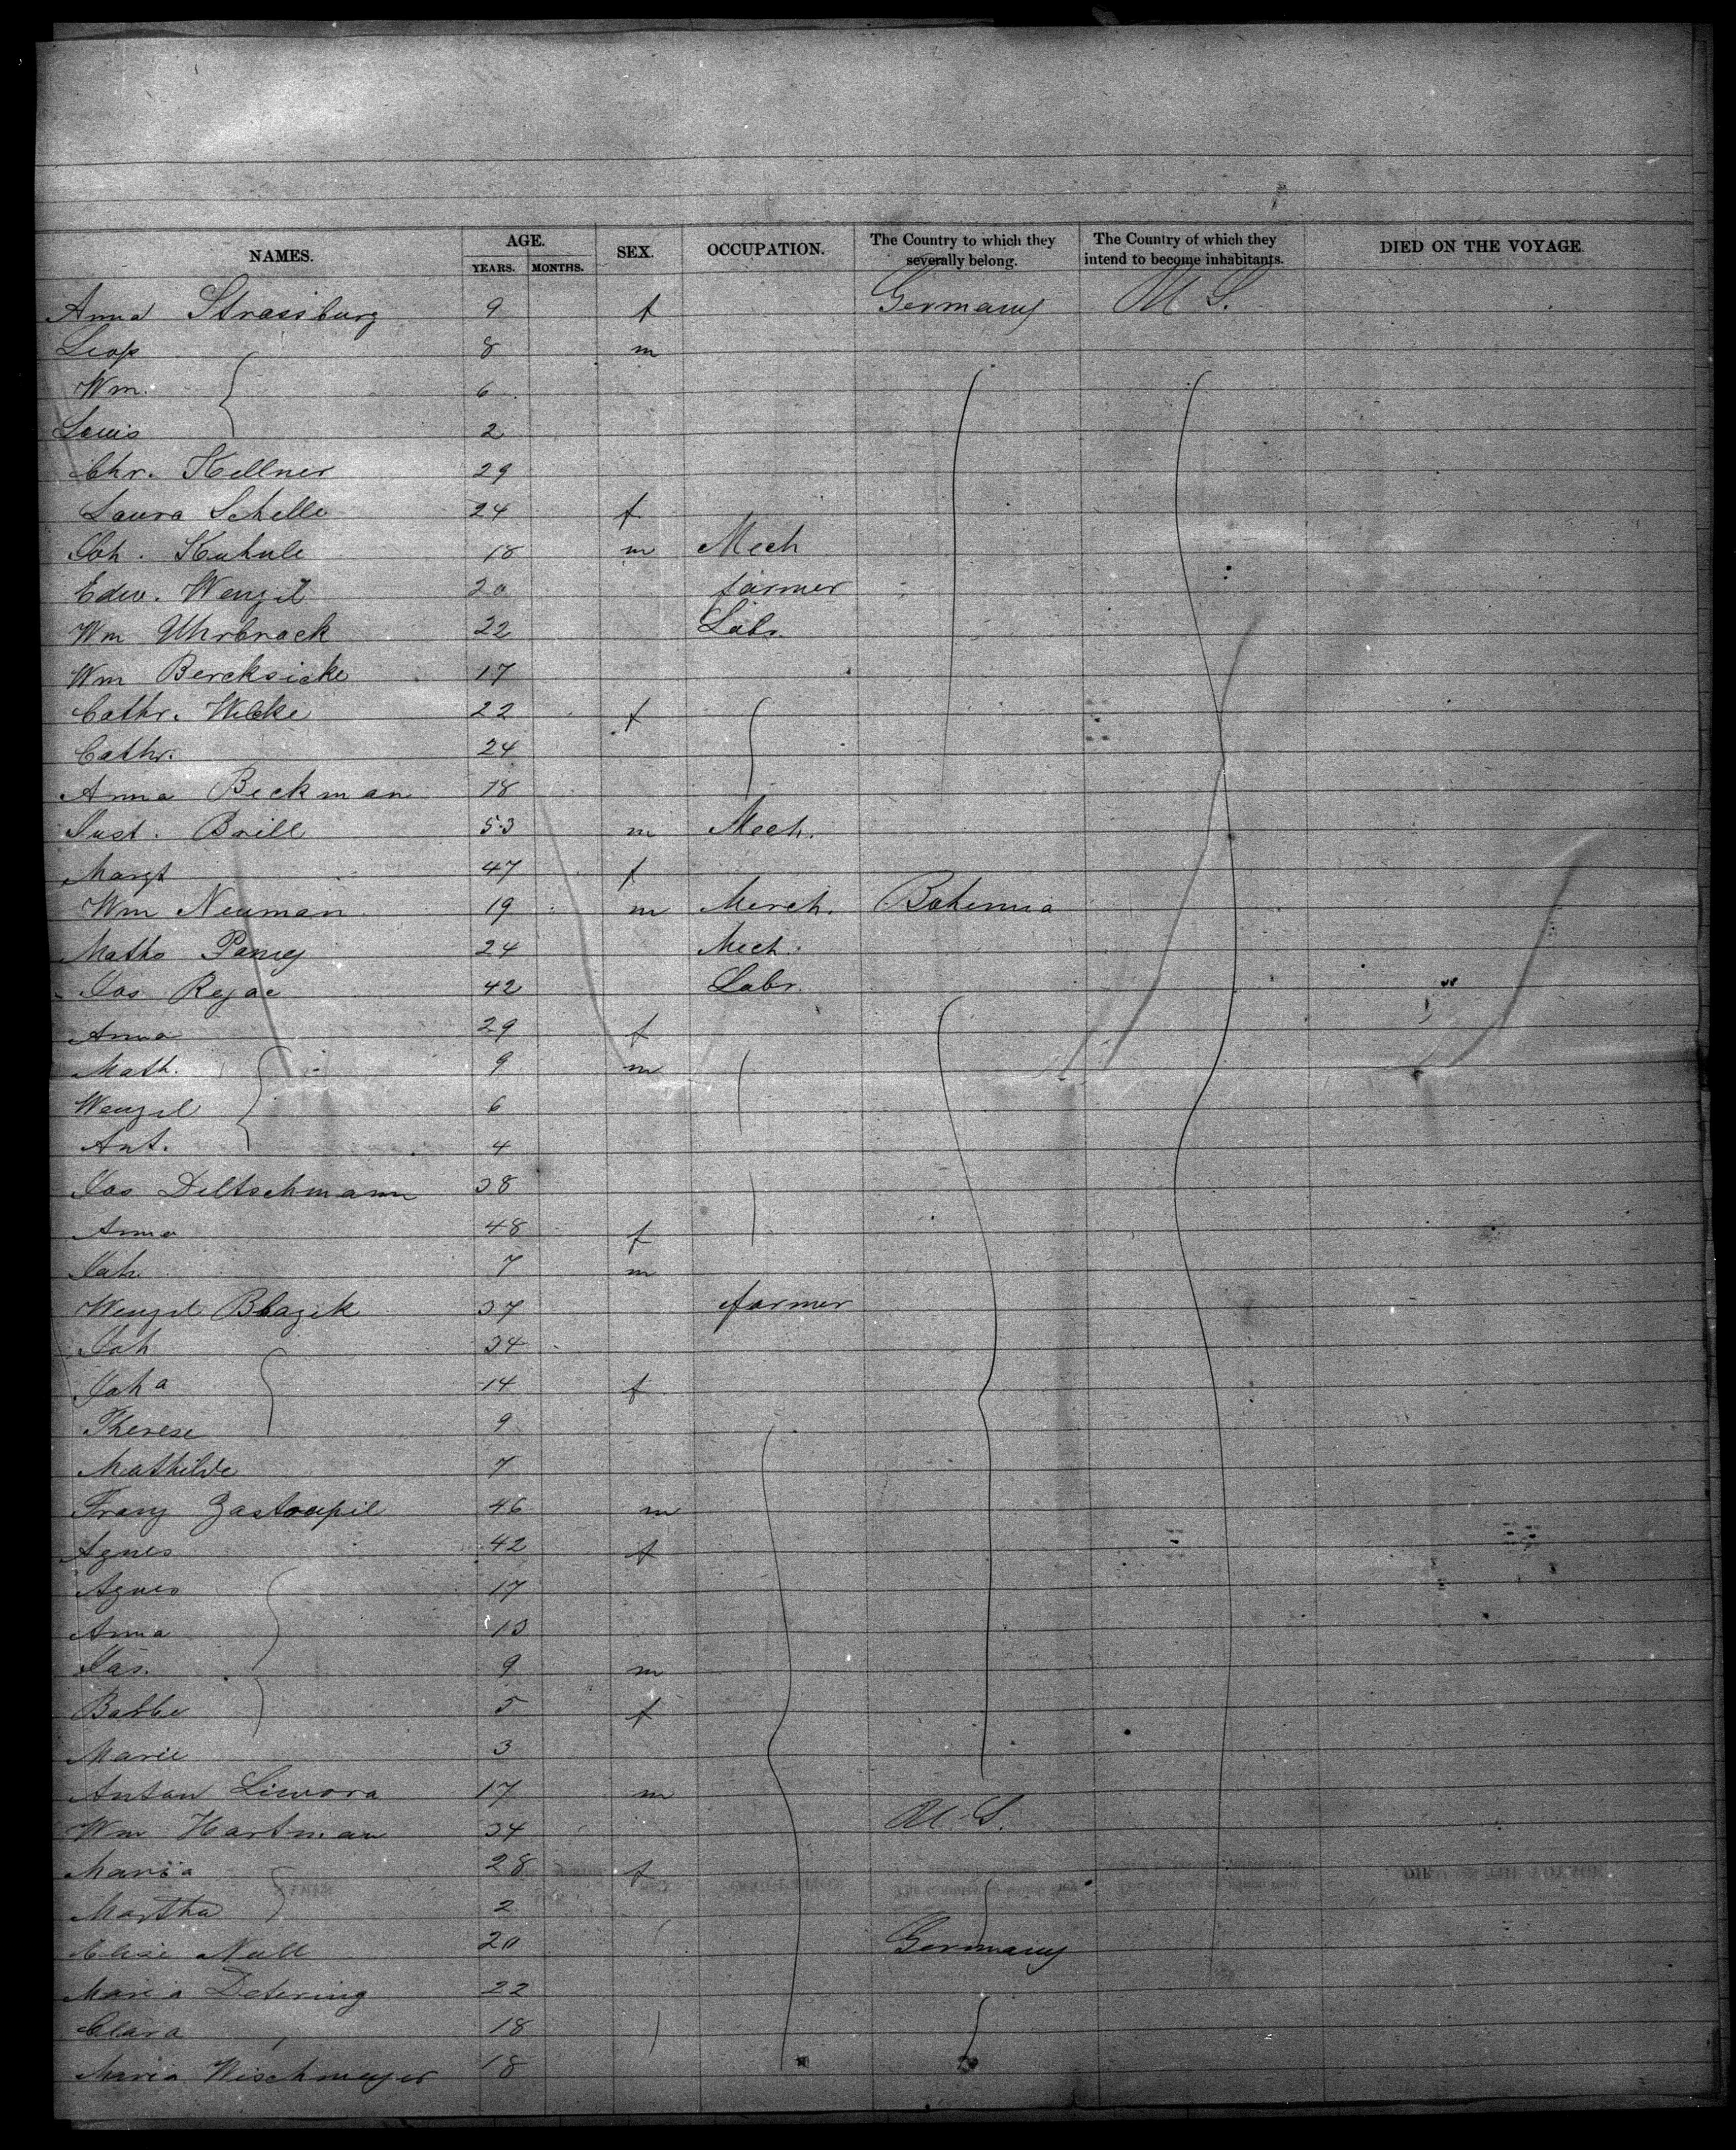 NAMES. AGE. SEX. OCCUPATION. The Country to which they severally belong. The Country of which they intend to become inhabitants. DIED ON THE VOYAGE.
YEARS. MONTHS.
Anna Strassburg 9 f Germany U S.
Leop 8 m
Wm. 6
Louis 2
Chr. Kellner 29
Laura Schelle 24 f
Joh. Kuhule 18 m Mech
Edw. Wenzel 20 farmer
Wm Uhrbrock 22 Labr
Wm Bercksicke 17
Cathr. Wilcke 22 f
Cathr. 24
Anna Beckman 18
Just. Brill 53 m Mech.
Margt 47 f
Wm Neuman 19 m Merch. Bohemia
Maths 24 Mech.
Jos Rejac 42 Labr.
Anna 29 f
Math. 9 m
Wenzel 6
Ant. 4
Jos Deltschmann 38
Anna 48 f
Joh. 7 m
Wenzel Blazek 37 farmer
Joh 34
Joh a 14 f
Therese 9
Mathilde 7
Franz Zastoupil 46 m
Agnes 42 f
Agnes 17
Anna 13
Jas. 9 m
Barbe 5 f
Marie 3
Anton Liwora 17 m
Wm Hartman 34 U S.
Maria 28 f
Martha 2
Elise Null 20 Germany
Maria Detering 22
Clara 18
Maria Wischmeyer 18